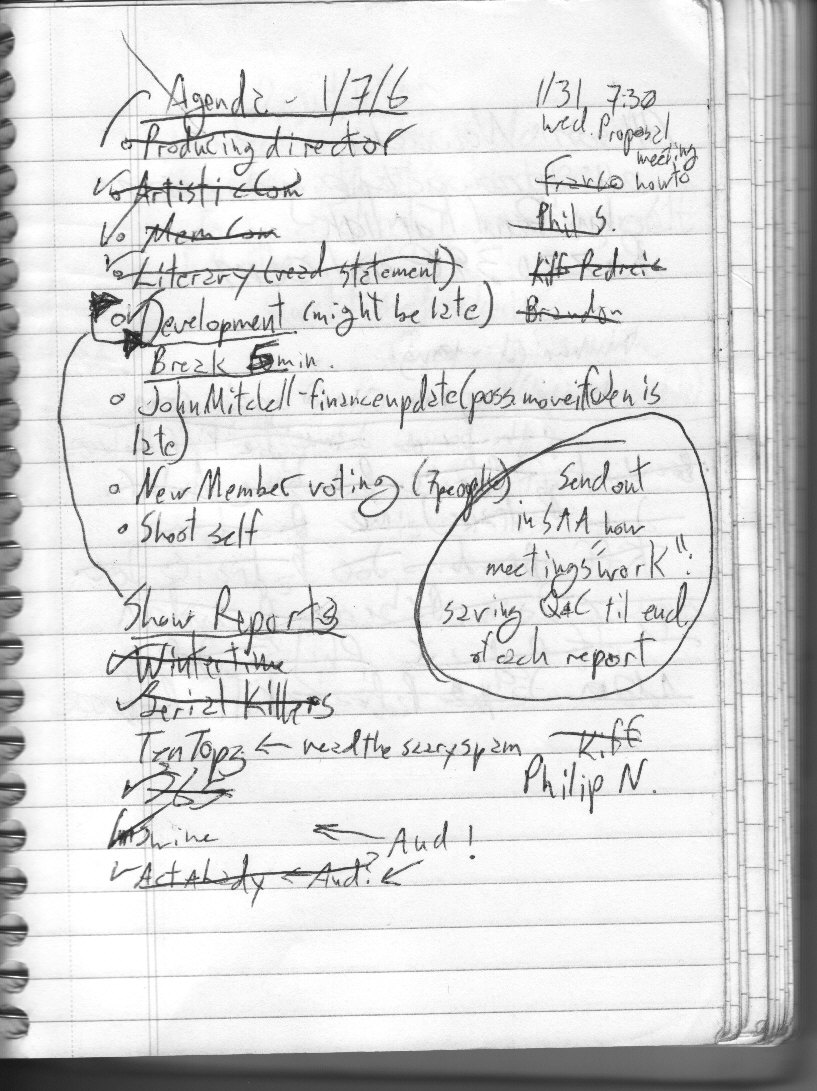 Agenda - 1/7/6
1/31 7:30
wed. Proposal
meeting
howto
Producing director
Artistic Com
Franco
Mem Com
Phil S.
Literary (read statement)
Kiff Padraic
Development (might be late)
Brandon
Break 5 min.
John Mitchell - finance update (poss. move if is
late)
New Member voting (7 people)
Shoot self
Send out
in SAA how
meetings work":
saving Q&C til end
of each report
Show Reports
Wintertime
Serial Killers
TanTops ← read the scary spam
Kiff
Philip N.
365
Swine ← Aud!
Act Abady ← Aud?